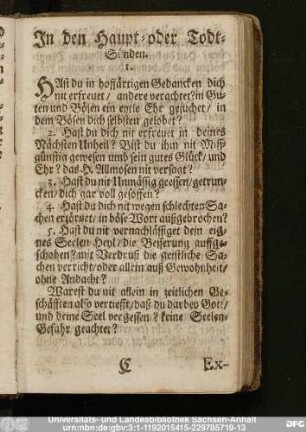 In den Haupt- oder Todt-
Sünden.
1.
HAst du in hoffärtigen Gedancken dich
nit erfreuet / andere verachtet? in Gu-
ten und Bösen ein eytle Ehr gesuchet / in
dem Bösen dich selbsten gelobet?
2. Hast du dich nit erfreuet in deines
Nächsten Unheil? Bist du ihm nit Miß-
günstig gewesen umb sein gutes Glück / und
Ehr? das H. Allmosen nit versagt?
3. Hast du nit Unmässig geessen / getrun-
cken / dich gar voll gesoffen?
4. Hast du dich nit wegen schlechten Sa-
chen erzörnet / in böse Wort außgebrochen?
5. Hast du nit vernachlässiget dein eig-
nes Seelen-Heyl / die Besserung auffge-
schoben? mit Verdruß die geistliche Sa-
chen verricht / oder allein auß Gewohnheit /
ohne Andacht?
Warest du nit allein in zeitlichen Ge-
schäfften also vertiefft / daß du darbey Gott /
und deine Seel vergessen? keine Seelen-
Gefahr geachtet?
C Ex-
Universitäts- und Landesbibliothek Sachsen-Anhalt
urn:nbn:de:gbv:3:1-1192015415-229785719-13
DFG